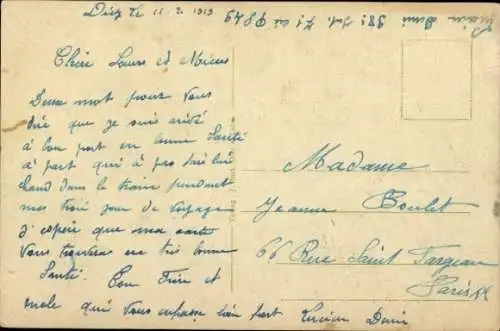 Diez le 11. 2. 1919
Chère Soeurs et Mieus
Deux mot pour vous
dire que je suis arivé
à bon port en bonne Santé
à part qui à pas fait bien
chaud dans le train pendant
mes trois jour de voyage
j'espeir que ma carte
Vous trouvera en très bonne
Santé. Ton Frère et
qui Vous embrasse bien fort Lucien Denis
Madame
Jeanne Boulet
66 Rue Saint Fargeau
Paris XX